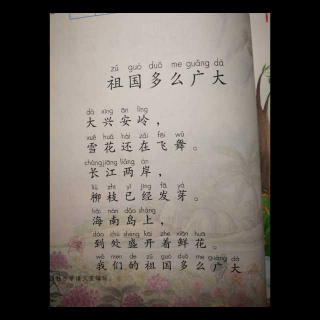 zǔ guó duō me guǎng dà
祖国多么广大
dà xīng ān lǐng
大兴安岭，
xuě huā hái zài fēi wǔ
雪花还在飞舞。
cháng jiāng liǎng àn
长江两岸，
liǔ zhī yǐ jīng fā yá
柳枝已经发芽。
hǎi nán dǎo shàng
海南岛上，
dào chù shèng kāi zhe xiān huā
到处盛开着鲜花。
wǒ men de zǔ guó duō me guǎng dà
我们的祖国多么广大